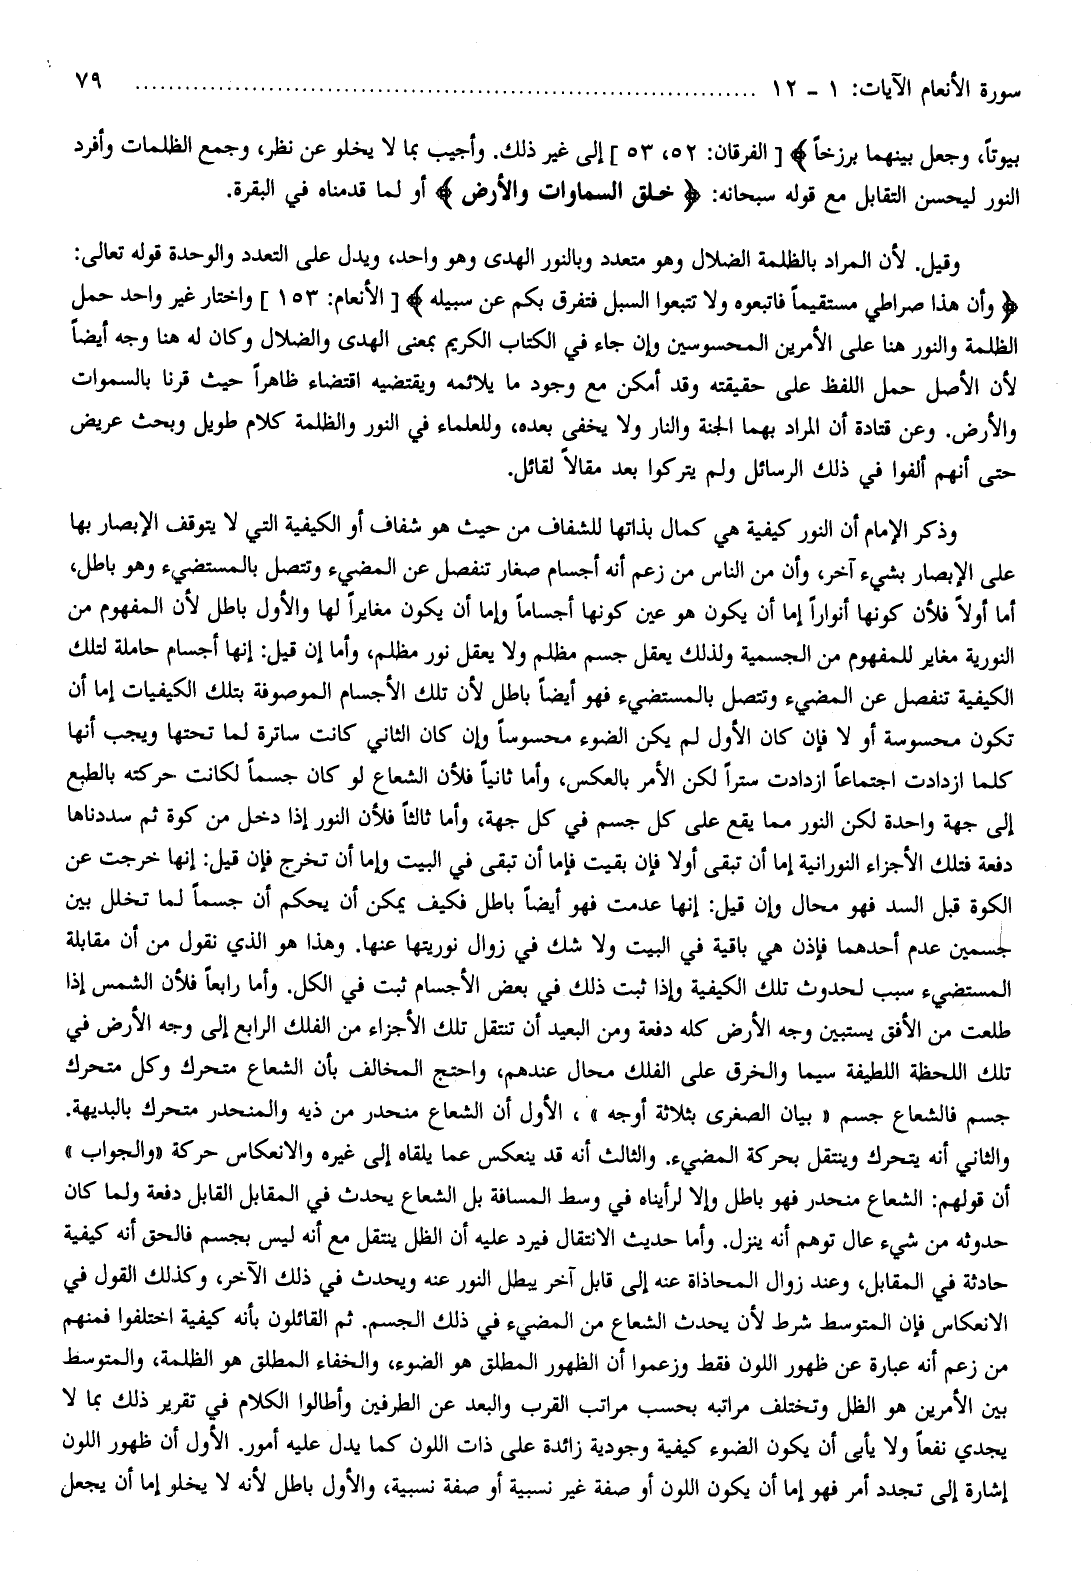 سورة الأنعام الآيات: ١ - ١٢ ........................................................................... ٧٩
بيوتاً، وجعل بينهما برزخاً ﴾ [ الفرقان: ٥٢، ٥٣ ] إلى غير ذلك. وأجيب بما لا يخلو عن نظر، وجمع الظلمات وأفرد
النور ليحسن التقابل مع قوله سبحانه: ﴿ خلق السماوات والأرض ﴾ أو لما قدمناه في البقرة.
وقيل. لأن المراد بالظلمة الضلال وهو متعدد وبالنور الهدى وهو واحد، ويدل على التعدد والوحدة قوله تعالى:
﴿ وأن هذا صراطي مستقيماً فاتبعوه ولا تتبعوا السبل فتفرق بكم عن سبيله ﴾ [ الأنعام: ١٥٣ ] واختار غير واحد حمل
الظلمة والنور هنا على الأمرين المحسوسين وإن جاء في الكتاب الكريم بمعنى الهدى والضلال وكان له هنا وجه أيضاً
لأن الأصل حمل اللفظ على حقيقته وقد أمكن مع وجود ما يلائمه ويقتضيه اقتضاء ظاهراً حيث قرنا بالسموات
والأرض. وعن قتادة أن المراد بهما الجنة والنار ولا يخفى بعده، وللعلماء في النور والظلمة كلام طويل وبحث عريض
حتى أنهم ألفوا في ذلك الرسائل ولم يتركوا بعد مقالاً لقائل.
وذكر الإمام أن النور كيفية هي كمال بذاتها للشفاف من حيث هو شفاف أو الكيفية التي لا يتوقف الإبصار بها
على الإبصار بشيء آخر، وأن من الناس من زعم أنه أجسام صغار تنفصل عن المضيء وتتصل بالمستضيء وهو باطل،
أما أولاً فلأن كونها أنواراً إما أن يكون هو عين كونها أجساماً وإما أن يكون مغايراً لها والأول باطل لأن المفهوم من
النورية مغاير للمفهوم من الجسمية ولذلك يعقل جسم مظلم ولا يعقل نور مظلم، وأما إن قيل: إنها أجسام حاملة لتلك
الكيفية تنفصل عن المضيء وتتصل بالمستضيء فهو أيضاً باطل لأن تلك الأجسام الموصوفة بتلك الكيفيات إما أن
تكون محسوسة أو لا فإن كان الأول لم يكن الضوء محسوساً وإن كان الثاني كانت ساترة لما تحتها ويجب أنها
كلما ازدادت اجتماعاً ازدادت ستراً لكن الأمر بالعكس، وأما ثانياً فلأن الشعاع لو كان جسماً لكانت حركته بالطبع
إلى جهة واحدة لكن النور مما يقع على كل جسم في كل جهة، وأما ثالثاً فلأن النور إذا دخل من كوة ثم سددناها
دفعة فتلك الأجزاء النورانية إما أن تبقى أولا فإن بقيت فإما أن تبقى في البيت وإما أن تخرج فإن قيل: إنها خرجت عن
الكوة قبل السد فهو محال وإن قيل: إنها عدمت فهو أيضاً باطل فكيف يمكن أن يحكم أن جسماً لما تخلل بين
جسمين عدم أحدهما فإذن هي باقية في البيت ولا شك في زوال نوريتها عنها. وهذا هو الذي نقول من أن مقابلة
المستضيء سبب لحدوث تلك الكيفية وإذا ثبت ذلك في بعض الأجسام ثبت في الكل. وأما رابعاً فلأن الشمس إذا
طلعت من الأفق يستبين وجه الأرض كله دفعة ومن البعيد أن تنتقل تلك الأجزاء من الفلك الرابع إلى وجه الأرض في
تلك اللحظة اللطيفة سيما والخرق على الفلك محال عندهم، واحتج المخالف بأن الشعاع متحرك وكل متحرك
جسم فالشعاع جسم « بيان الصغرى بثلاثة أوجه » ، الأول أن الشعاع منحدر من ذيه والمنحدر متحرك بالبديهة.
والثاني أنه يتحرك وينتقل بحركة المضيء. والثالث أنه قد ينعكس عما يلقاه إلى غيره والانعكاس حركة «والجواب »
أن قولهم: الشعاع منحدر فهو باطل وإلا لرأيناه في وسط المسافة بل الشعاع يحدث في المقابل القابل دفعة ولما كان
حدوثه من شيء عال توهم أنه ينزل. وأما حديث الانتقال فيرد عليه أن الظل ينتقل مع أنه ليس بجسم فالحق أنه كيفية
حادثة في المقابل، وعند زوال المحاذاة عنه إلى قابل آخر يبطل النور عنه ويحدث في ذلك الآخر، وكذلك القول في
الانعكاس فإن المتوسط شرط لأن يحدث الشعاع من المضيء في ذلك الجسم. ثم القائلون بأنه كيفية اختلفوا فمنهم
من زعم أنه عبارة عن ظهور اللون فقط وزعموا أن الظهور المطلق هو الضوء، والخفاء المطلق هو الظلمة، والمتوسط
بين الأمرين هو الظل وتختلف مراتبه بحسب مراتب القرب والبعد عن الطرفين وأطالوا الكلام في تقرير ذلك بما لا
يجدي نفعاً ولا يأبى أن يكون الضوء كيفية وجودية زائدة على ذات اللون كما يدل عليه أمور. الأول أن ظهور اللون
إشارة إلى تجدد أمر فهو إما أن يكون اللون أو صفة غير نسبية أو صفة نسبية، والأول باطل لأنه لا يخلو إما أن يجعل